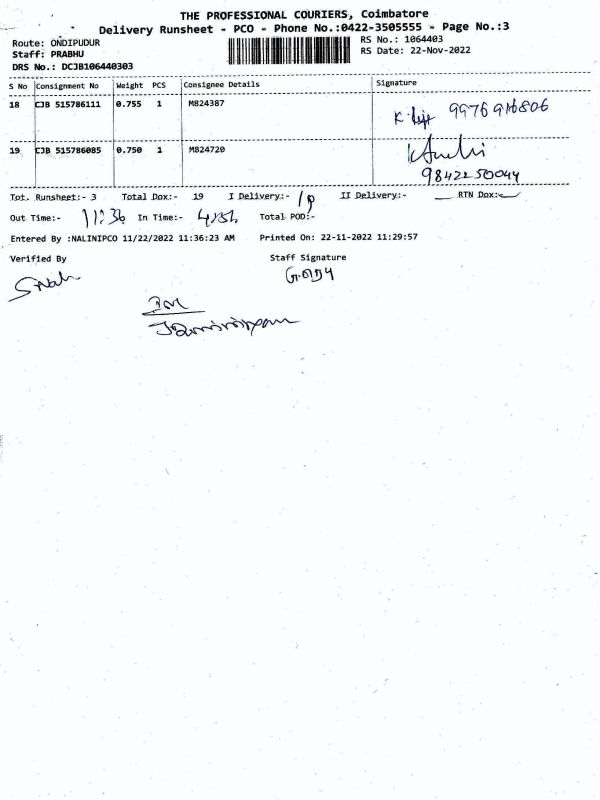 THE PROFESSIONAL COURIERS, Coimbatore
Delivery Runsheet - PCO - Phone No.:0422-3505555 - Page No.:3
Route: ONDIPUDUR RS No.: 1064403
Staff: PRABHU RS Date: 22-Nov-2022
DRS No.: DCJB106440303
S No Consignment No Weight PCS Consignee Details Signature
18 CJB 515786111 0.755 1 M824387 9976916806
19 CJB 515786085 0.750 1 M824720
9842250044
Tot. Runsheet:- 3 Total Dox:- 19 I Delivery:- II Delivery:- RTN Dox:-
Out Time:- 11:36 In Time:- Total POD:-
Entered By :NALINIPCO 11/22/2022 11:36:23 AM Printed On: 22-11-2022 11:29:57
Verified By Staff Signature